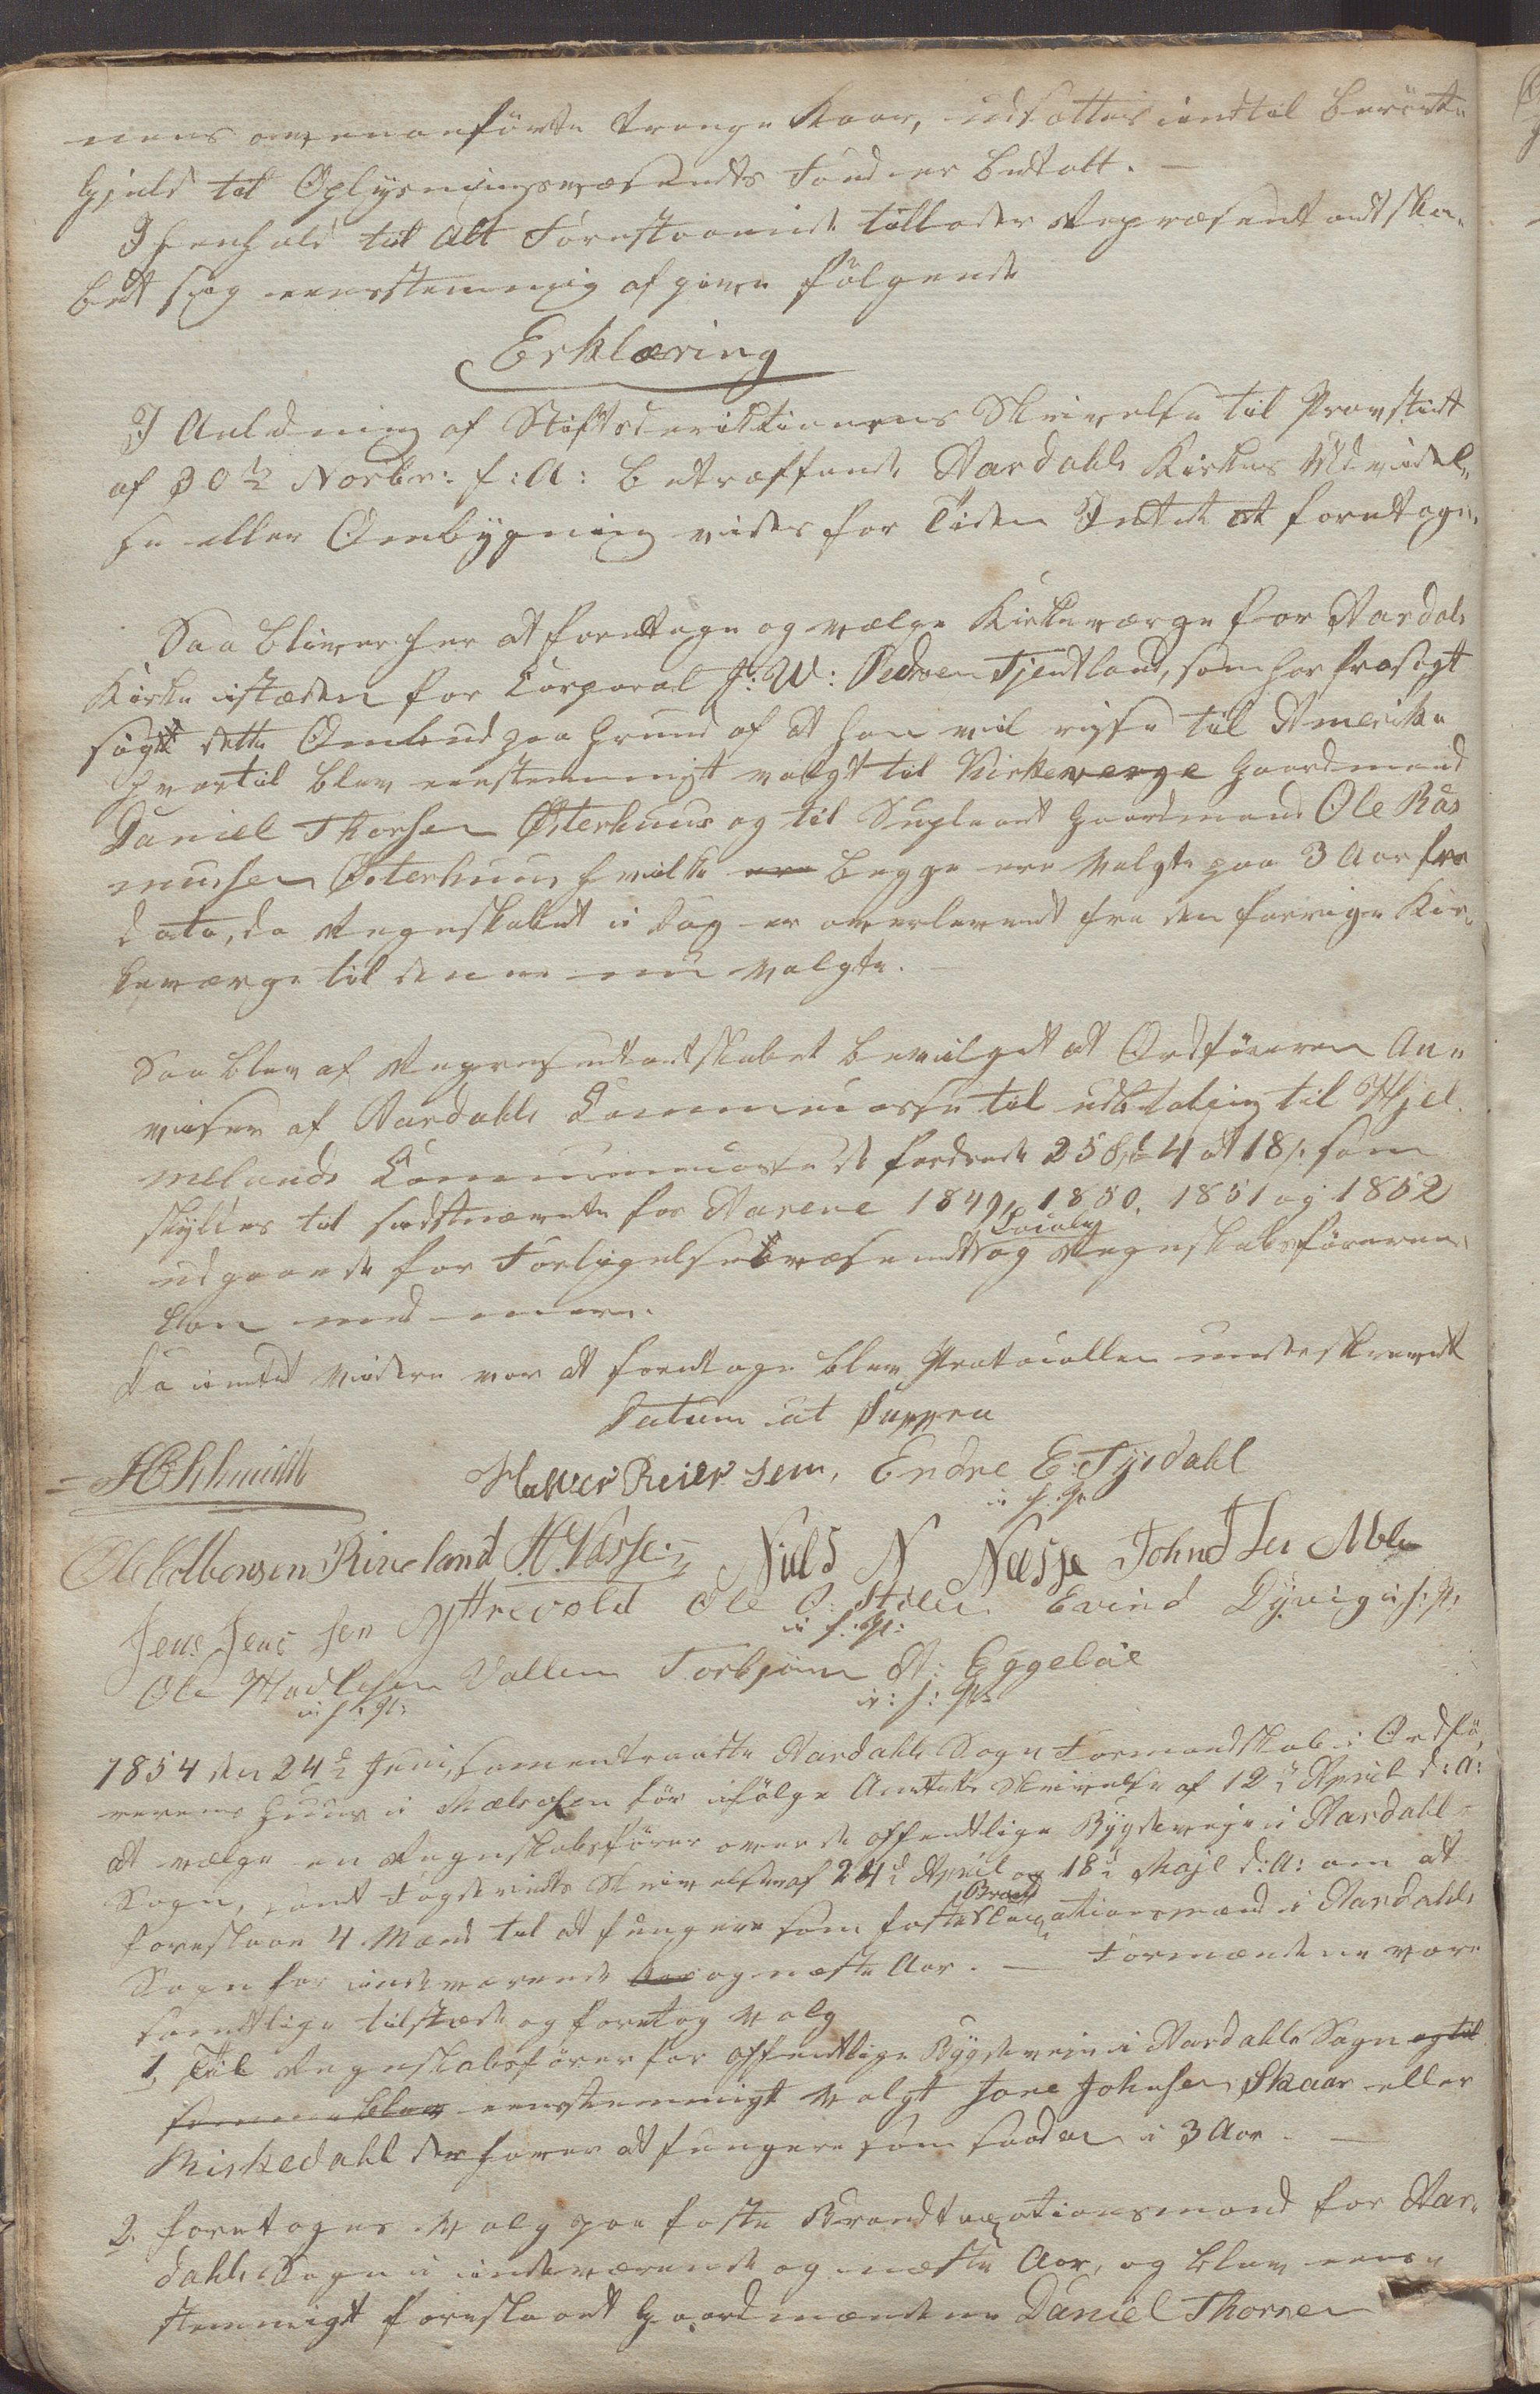 nens ovenanførte trange Kaar, udsættes indtil berørte
Gjeld til Oplysningsvæsendts Fond er betalt. —
I henhold til Alt Forestaaende tillader Repræsentantska-
bet sig eenstemmig afgiven følgende
Erklæring
I Anledning af Stiftsdirektionens Skrivelse til Provstiet
af 30te Novbr: f: A: betræffende Aardahls Kirkes Udvidel-
se eller Ombygning vides for Tiden Intet at foretage.
Saa bliver her at foretage og vælge Kirkeværge for Aardals
Kirke istæden for Corporal J: W: Pedersen Tjentland, som har frasagt
sagt dette Ombud paa Grund af at han vil rejse til Amerika
hvortil blev eenstemmigt valgt til Kirkeverge Gaardmand
Daniel Thorsen Østerhuus og til Supleant Gaardmand Ole Ras
mussen Østerhuus hvilke ere begge ere valgte paa 3 Aar fra
dato, da Regnskabet i Dag er overleveret fra den forrige Kir-
keværge til denne nu valgte. —
Saa blev af Repræsentantskabet bevilget at Ordføreren An-
viser af Aardahls Communecasse til udbetaling til Hjel-
melands Communecasse de fordrede 258 4 18 s: som
skyldes til sidstnævnte for Aarene 1849, 1850, 1851 og 1852
Locale
udgaaende for Forligelsesvæsendt og Regnskabsførerens
Løn med mere.
Da intet videre var at foretage blev Protocollen underskrevet
Datum ut supra
H Schmidt Halver Reiersen, Endre E. Tysdahl
m. f. P.
Ole Kolbensen Riveland H. Vasse Niels N Nessje John J Sen Mele
Jens Jenssen Yttrevold Ole O: Stølen Evind Dyvig m: f: P:
m. f. P:
Ole Hadlesen Vallem Torbjørn A: Eggebøe
m: f: P: m: f: P:
1854 den 24de Juni, sammentraadte Aardahls Sogns Formandskab i Ordfø-
rerens Huus i Mælehsen for ifølge Amtets Skrivelse af 12te April d: A:
at vælge en Regnskabsfører over de offentlige Bygdeveje i Aardahls
Sogn, samt Fogderiets Skrivelse af 24de April og 18de Maje d: A: om at
Brand
foreslaae 4 Mænd til at fungere som faste Taxationsmænd i Aardahls
Sogn for indeværende Aar og næste Aar. — Formændene vare
samtlige tilstæde og foretog valg
1, Til Regnskabsfører for offentlige Bygdeveje i Aardahls Sogn og til
samme blev eenstemmigt valgt Jone Johnsen Skaar eller
Riskedahl der haver at fungere som saadan i 3 Aar. —
2. foretoges Valg paa faste Brandtaxationsmænd for Aar-
dahls Sogn i indeværende og næste Aar, og blev eens-
stemmigt foreslaaet Gaardmændene Daniel Thorsen